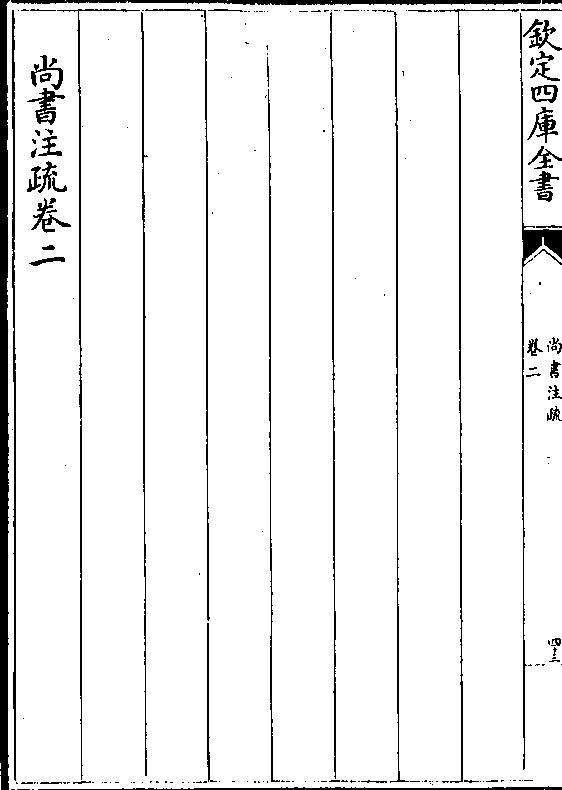 欽定四庫全書
尚書注疏
卷二
四十三
尚書注疏卷二